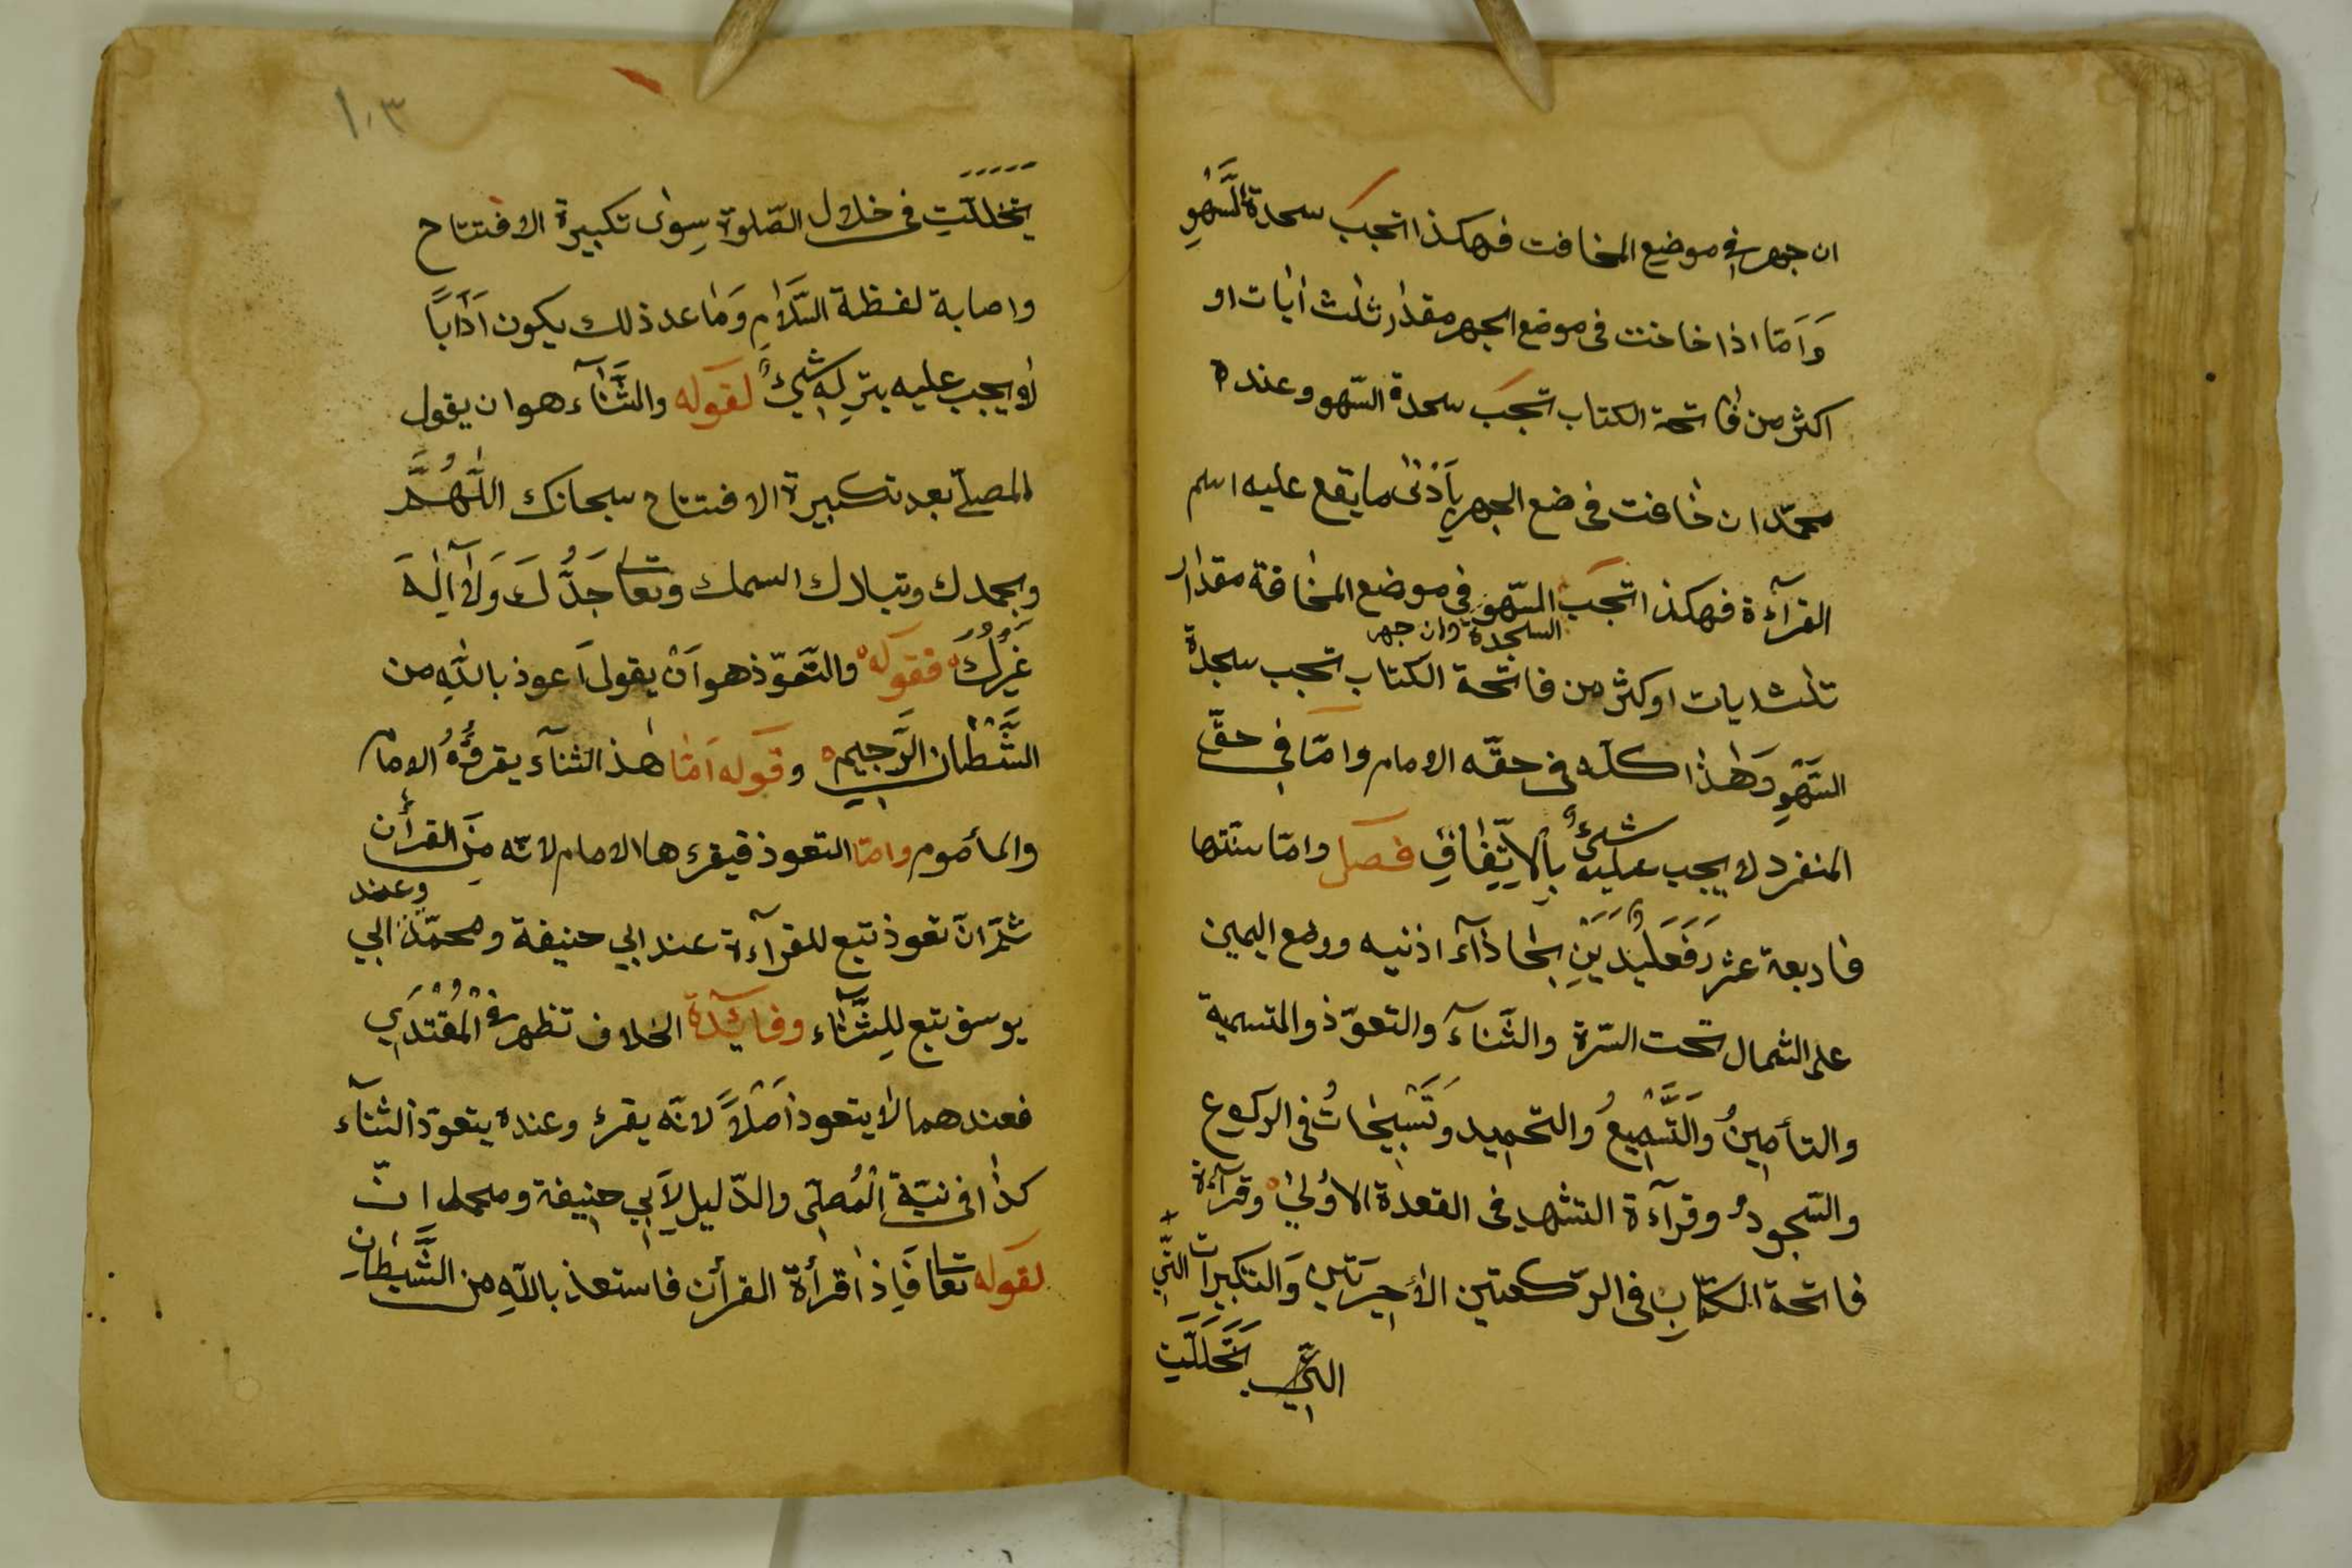 ان جهر في موضيع المخافت فهكذا تجب سجدة السَّهْوِ
وَاَمّا اذا خافت فى موضع الجهر مقدار ثلث اٰيات او
اكثر من فاتحة الكتاب تجب سجدة السّهو وعنده
محمّد ان خافت فى ضع الجهر بِاَدْنٰى ما يقع عليه اسم
القرآءة فهكذا تجب السّهو في موضع المخافة مقدار
السجدة وان جهر
ثلث ايات او كثر من فاتحة الكتاب تجب سجدة
السَّهْوِ وَهٰذا كلّه فى حقّه الامام وامّا في حقّ
المنفرد لا يجب عليه شئٌ بِالْاِتِّفَاقِ فصل وامّا سنتها
فاربعة عشر رَفَعَلْيَدَيْنِ بحاذآء اذنيه ووضع اليمين
على الشمال تحت السّرة والثّنآء والتعوّذ والتسمية
والتأمينُ والتَّسْمِيعُ والتحميد وَتَسْبِيحَاتُ فى الركوع
والسّجودُ وقرآءة التشهد فى القعدة الاُولىٰ وقرآءة
فاتحة الكتابِ فى الرّكعتين الأخيرَتَيْنِ وَالتكبيرات الّتِي
الّتِي يَتَخَلَّلَتِ
١٠٣
يتخلّلَتِ فى خلال الصّلوة سِوٰى تكبيرة الافتتاح
واصابة لفظة السّلامِ وَمَا عد ذلك يكون اَدَاباً
لا يجب عليه بتركِهِ شَيْئٌ لقوله والثَّنَآء هو ان يقول
المصلّى بعد تكبيرة الافتتاح سبحانك اللّٰهُمَّ
وبحمدك وتبارك السمك وتعالى جَدُّكَ وَلَا اِلٰهَ
غَيْرُكَ فقوله والتّعوّذ هو اَنْ يقول اَعوذ باللّٰهِ من
الشَّيْطان الرَّجيمِ وقوله اَمَّا هٰذ الثنآء يقرؤُهُ الامام
والمأموم وامّا التعوذ فيقرء ها الامام لانّه مِنَ القرأن
وعند
ثمّ انّ تعوذ تبع للقرآءة عند ابي حنيفة ومحمّد ابي
يوسف تبع لِلثَّنَآء وفائدة الخلاف تظهر في الْمُقْتَدِي
فعندهما لا يتعوذ اَصْلاً لانّه يقرء وعنده يتعوّذ الثنآء
كذا فى نيّة الْمُصلّى والدّليل لِاَبِي حنِيفة ومحمد انّ
لقوله تعا فَاِذا قرأة القرأن فاستعذ باللّٰهِ من الشَّيْطان